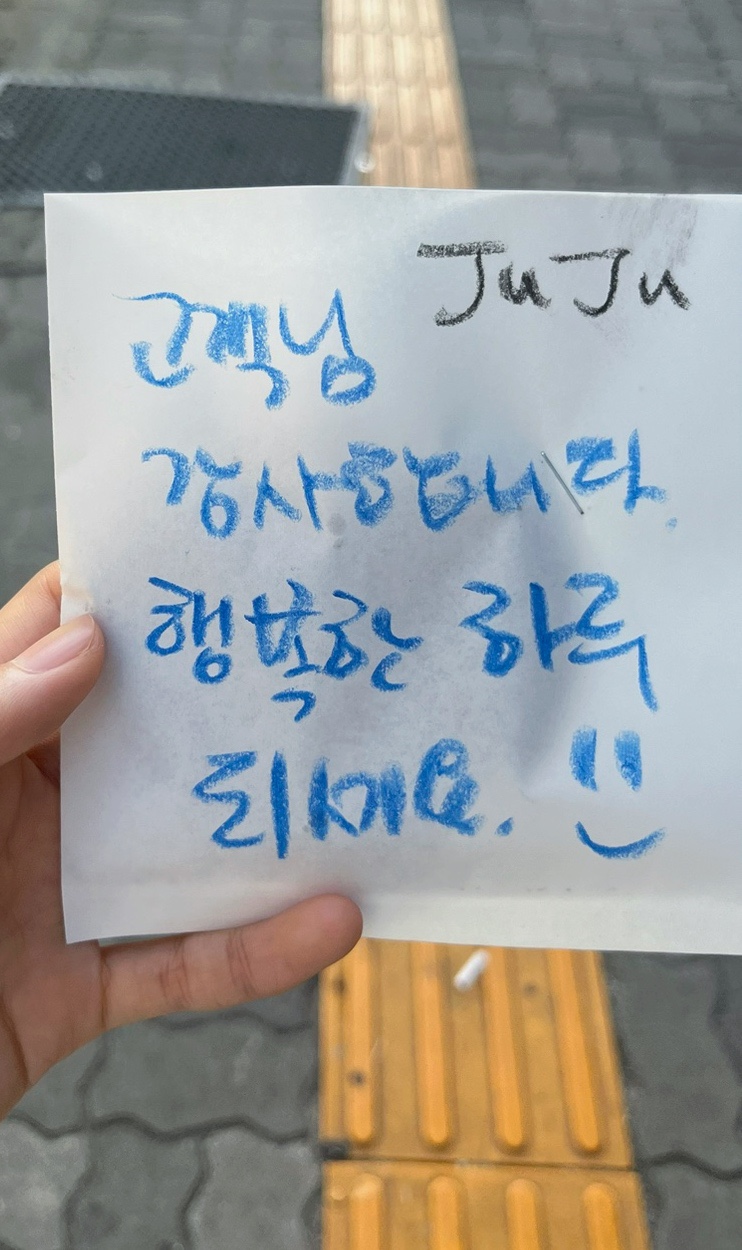 JuJu
고객님
감사합니다.
행복한 하루
되세요.